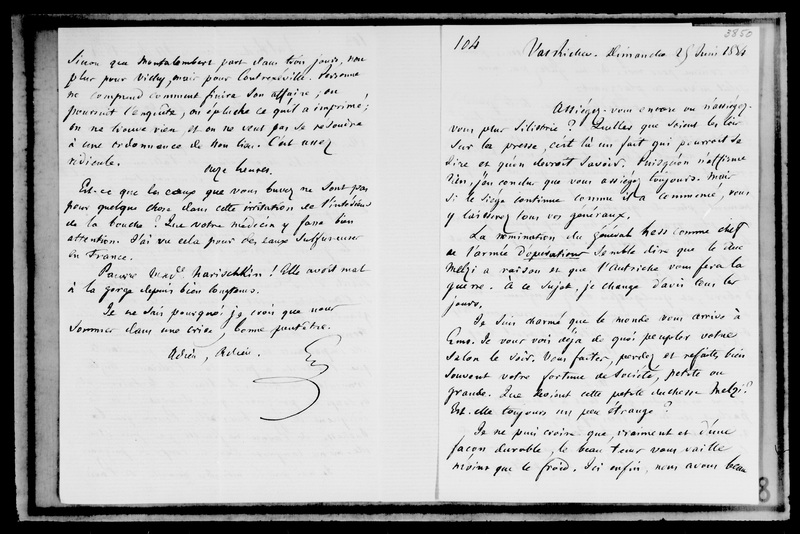 Sinon que Montalembert part dans trois jours, non
plus pour Vichy, mais pour Contrexéville. Personne
ne comprend comment finira son affaire ; on
poursuit l'enquête, on épluche ce qu'il a imprimé ;
on ne trouve rien et on ne veut pas se résoudre
à une ordonnance de non lieu. C'est assez
ridicule.
onze heures.
Est-ce que les eaux que vous buvez ne sont pas
pour quelque chose dans cette irritation de l'intérieur
de la bouche ? Que votre médecin y fasse bien
attention. J'ai vu cela pour des eaux sulfureuses
en France.
Pauvre Mad. Narischkin ! Elle avoit mal
à la gorge depuis bien longtems.
Je ne sais pourquoi je crois que nous
sommes dans une crise, bonne peut-être.
Adieu, Adieu.
3850
104
Val Richer. Dimanche 25 Juin 1854
Assiégez-vous encore ou n'assiégez-
vous plus Silistrie ? Quelles que soient les loix
sur la presse, c'est là un fait qui pourroit se
dire et qu'on devroit savoir. Puisqu'on n'affirme
rien, j'en conclus que vous assiégez toujours. Mais
si le siège continue comme il a commencé, vous
y laisserez tous vos généraux.
La nomination du général Hess comme chef
de l'armée d'opération semble dire que le duc
Melzi a raison et que l'Autriche vous fera la
guerre. À ce sujet, je change d'avis tous les
jours.
Je suis charmé que le monde vous arrive à
Ems. Je vous vois déjà de quoi peupler votre
salon le soir. Vous faites, perdez et refaites bien
souvent votre fortune de société, petite ou
grande. Que devient cette petite duchesse Melzi ?
Est-elle toujours un peu étrange ?
Je ne puis croire que, vraiment et d'une
façon durable, le beau tems vous vaille
moins que le froid. Ici enfin, nous avons beau
8